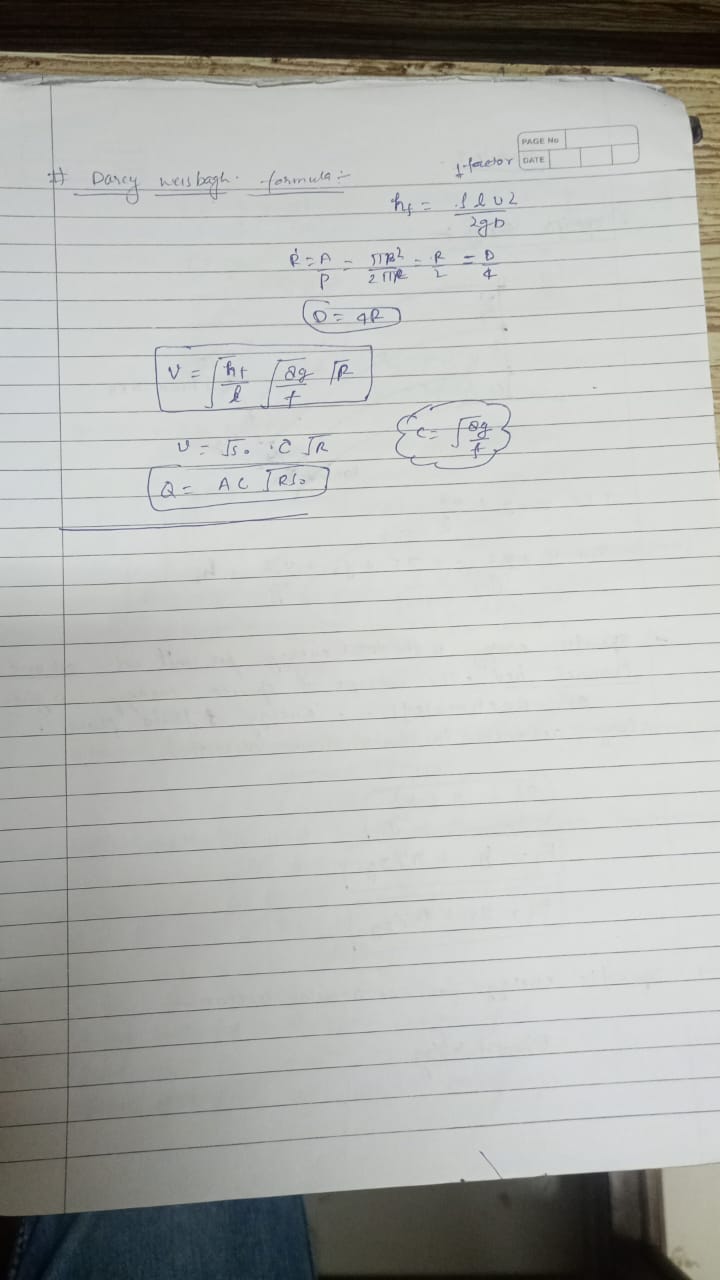 PAGE No
DATE
f-factor
# Darcy weisbagh. formula :-
hf = f l v2 / 2gD
R = A/P = πR2 / 2πR = R/2 = D/4
D = 4R
V = √hf/l √8g/f √R
v = √S0 . C √R
C = √8g/f
Q = AC √RS0